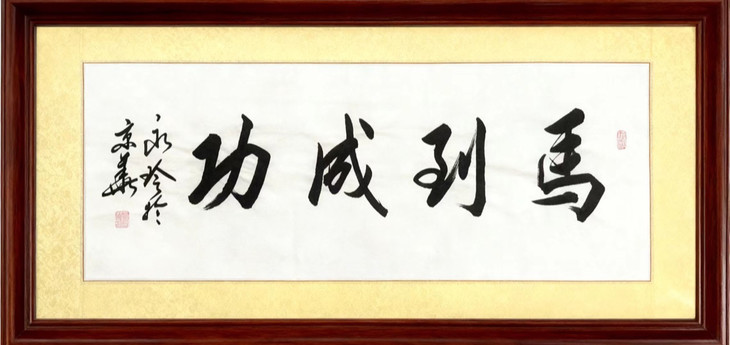 馬到成功
永玲於
京華